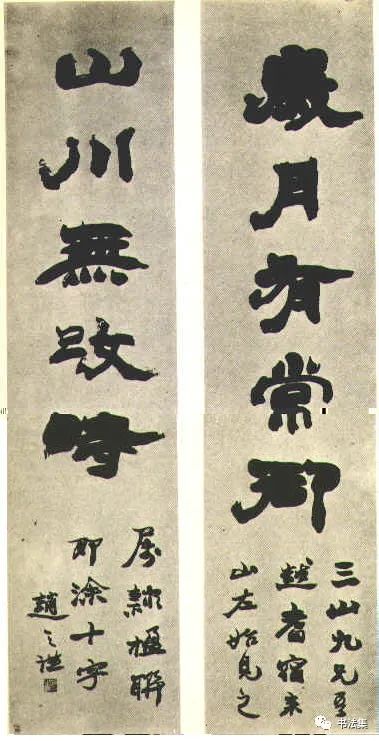 歲月有常御
三山九兄吾
越耆宿來
山左始見之
山川無改時
屬隸楹聯
即涂十字
趙之謙
书法集